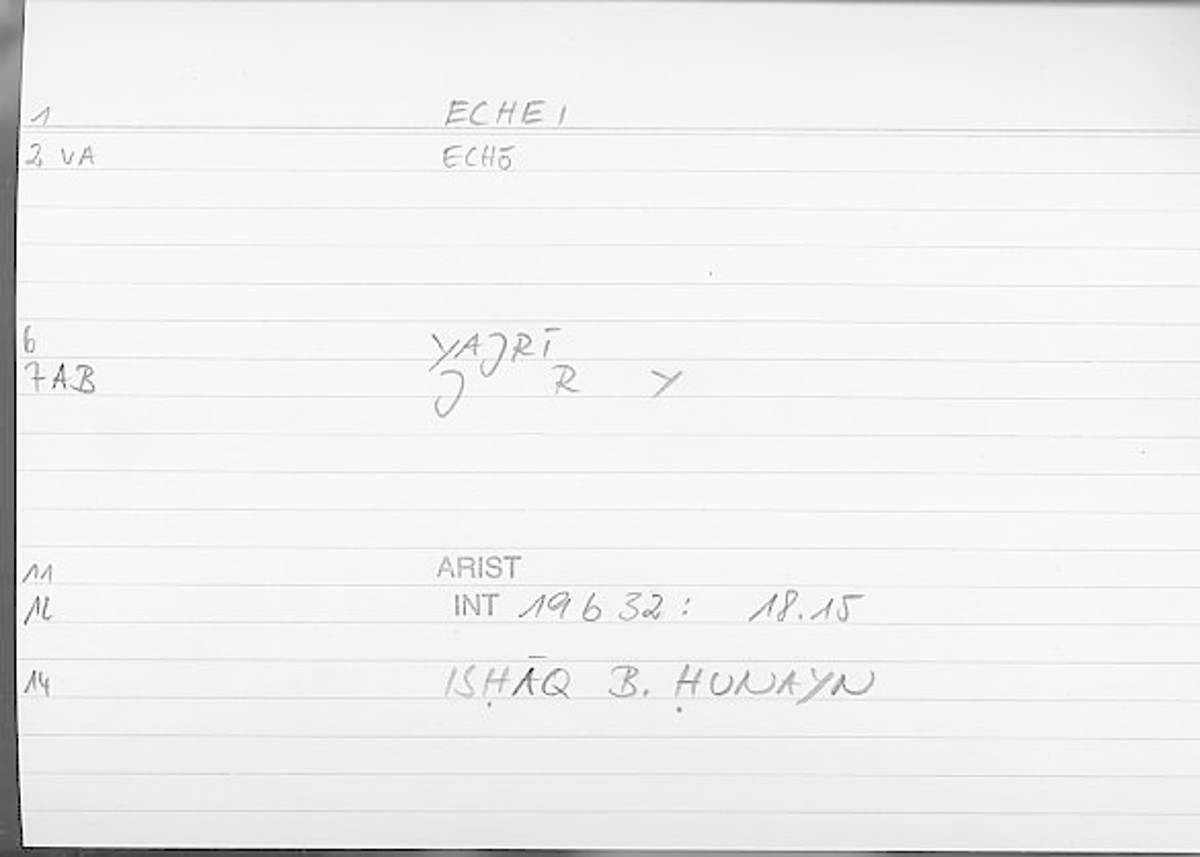 1 ECHEI
2 VA ECHŌ
6 YAJRĪ
7AB J R Y
11 ARIST
12 INT 19b32: 18.15
14 ISḤĀQ B. ḤUNAYN